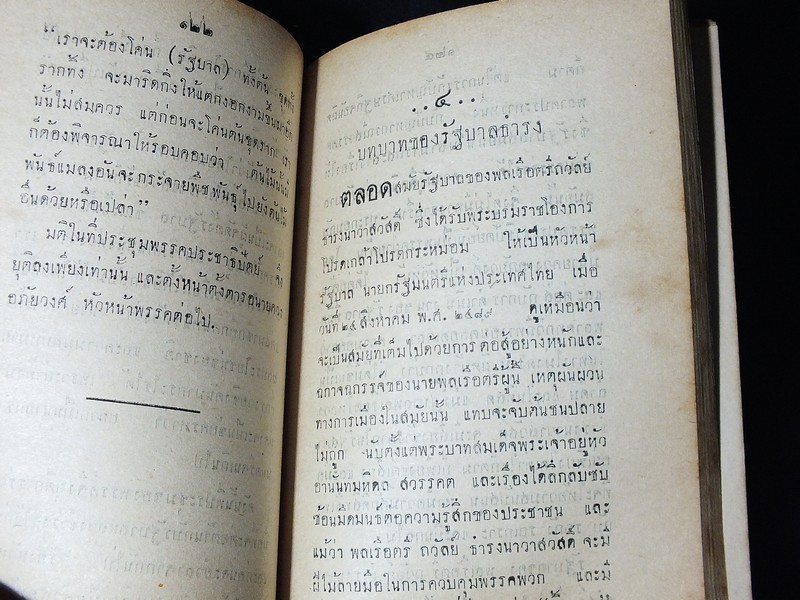 ๑๒๒
"เราจะต้องโค่น (รัฐบาล) ทั้งต้น ขุดทั้ง
รากทิ้ง จะมาริดกิ่งให้แตกงอกงามขึ้นมาอีก
นั้นไม่สมควร แต่ก่อนจะโค่นต้นขุดราก เรา
ก็ต้องพิจารณาให้รอบคอบว่า ต้นไม้นั้นมี
พันธุ์แมลงอันจะกระจายพืชพันธุ์ไปยังต้นไม้
อื่นด้วยหรือเปล่า"
มติในที่ประชุมพรรคประชาธิปัตย์ จึง
ยุติลงเพียงเท่านั้น และตั้งหน้าตั้งตารอนายควง
อภัยวงศ์ หัวหน้าพรรคต่อไป.
..๔..
บทบาทของรัฐบาลธำรง
ตลอดสมัยรัฐบาลของพลเรือตรีถวัลย์
ธำรงนาวาสวัสดิ์ ซึ่งได้รับพระบรมราชโองการ
โปรดเกล้าโปรดกระหม่อม ให้เป็นหัวหน้า
รัฐบาล นายกรัฐมนตรีแห่งประเทศไทย เมื่อ
วันที่ ๒๔ สิงหาคม พ.ศ. ๒๔๘๙ ดูเหมือนว่า
จะเป็นสมัยที่เต็มไปด้วยการต่อสู้อย่างหนักและ
ฉกาจฉกรรจ์ของนายพลเรือตรีผู้นี้ เหตุผันผวน
ทางการเมืองในสมัยนั้น แทบจะจับต้นชนปลาย
ไม่ถูก นับตั้งแต่พระบาทสมเด็จพระเจ้าอยู่หัว
อานันทมหิดล สวรรคต และเรื่องได้ลึกลับซับ
ซ้อนมืดมนธ์ต่อความรู้สึกของประชาชน และ
แม้ว่า พลเรือตรี ถวัลย์ ธำรงนาวาสวัสดิ์ จะมี
ฝีไม้ลายมือในการควบคุมพรรคพวก และมี